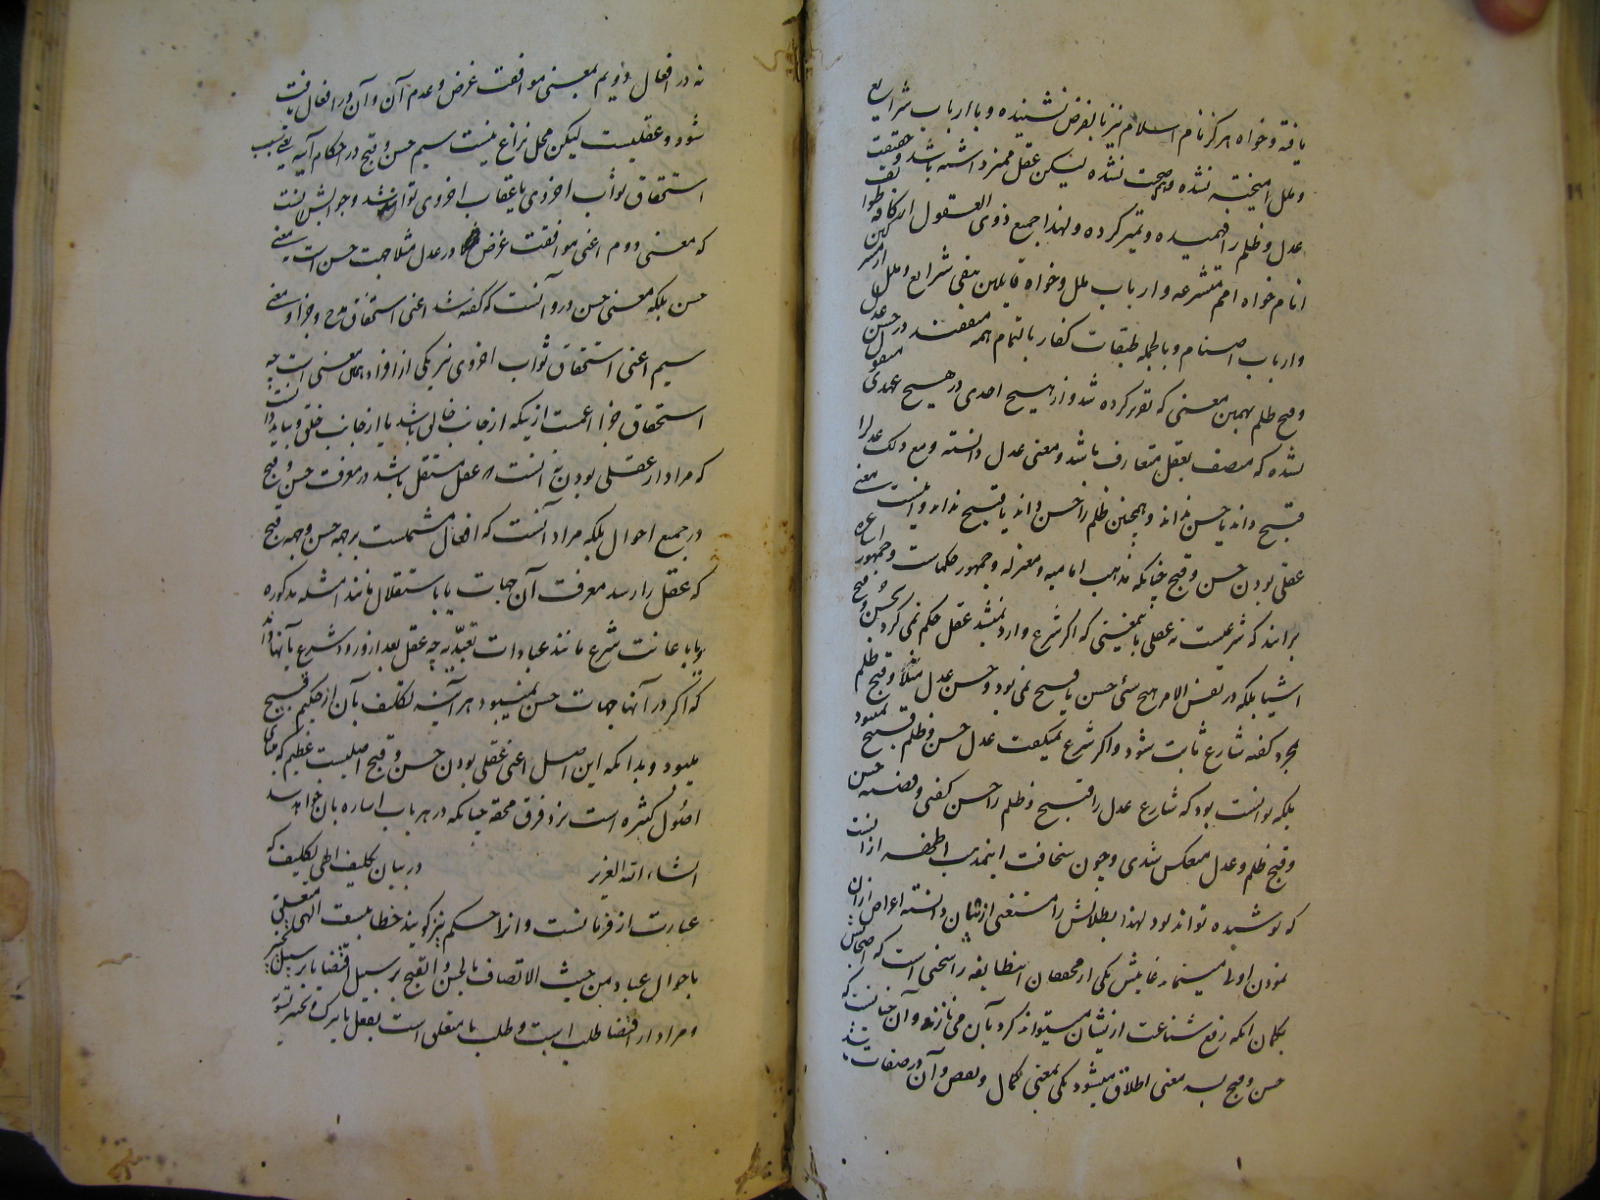 یافته و خواه هرگز نام اسلام نیز بالفرض نشنیده و با ارباب شرایع
و ملل آمیخته نشده و هم صحبت نشده لیکن عقل ممیز داشته باشد حقیقت
عدل و ظلم را فهمیده و تمیز کرده و لهذا جمیع ذوی العقول از کافه طوایف
انام خواه امم متشرعه و ارباب ملل و خواه قایلین بنفی شرایع و ملل از مشرکین
و ارباب اصنام و بالجمله طبقات کفار بالتمام همه متفقند در حسن عدل
و قبح ظلم بهمین معنی که تقریر کرده شد و از هیچ احدی در هیچ عهدی منقول
نشده که متصف بعقل متعارف باشد و معنی عدل دانسته و مع ذلک عدل را
قبیح داند یا حسن نداند و همچنین ظلم را حسن داند یا قبیح نداند و اینست معنی
عقلی بودن حسن و قبح چنانکه مذهب امامیه و معتزله و جمهور حکماست و جمهور اشاعره
برانند که شرعیست نه عقلی باینمعنی که اگر شرع وارد نمیشد عقل حکم نمی کرد بحسن و قبح
اشیا بلکه در نفس الامر هیچ شئ حسن یا قبیح نمی بود و حسن عدل مثلا و قبح ظلم
بمجرد گفته شارع ثابت شود و اگر شرع نمیگفت عدل حسن و ظلم قبیح نمیبود
بلکه توانست بود که شارع عدل را قبیح و ظلم را حسن گفتی و قضیه حسن
و قبح ظلم و عدل منعکس شدی و چون سخافت اینمذهب اظهر از آنست
که پوشیده تواند بود لهذا بطلانش را مستغنی از بیان دانسته اعراض از آن
نمودن اولی مینماید غایتش یکی از محققان اینطایفه را سخنی است که اصحابش
بگمان آنکه رفع شناعت ازیشان میتواند کرد بآن می نازند و آن چنانست که
حسن و قبح بسه معنی اطلاق میشود یکی بمعنی کمال و نقص و آن در صفات باشد
نه در افعال دویم بمعنی موافقت غرض و عدم آن و آن در افعال یافت
شود و عقلیست لیکن محل نزاع نیست سیم حسن و قبح در احکام آلهیه یعنی سبب
استحقاق ثواب اخروی یا عقاب اخروی تواند شد و جوابش آنست
که معنی دوم اعنی موافقت غرض در عدل مثلا جهت حسن است نه معنی
حسن بلکه معنی حسن درو آنست که گفته شد اعنی استحقاق مدح و جزا و معنی
سیم اعنی استحقاق ثواب اخروی نیز یکی از افراد همان معنی است چه
استحقاق جزا اعمست ازینکه از جانب خالق باشد یا از جانب خلق و بباید دانست
که مراد از عقلی بودن نه آنست که عقل مستقل باشد در معرفت حسن و قبح
در جمیع احوال بلکه مراد آنست که افعال مشتملست بر جهه حسن و جهه قبح
که عقل را رسد معرفت آن جهات یا باستقلال مانند امثله مذکوره
و یا باعانت شرع مانند عبادات تعبدیه چه عقل بعد از ورود شرع بآنها داند
که اگر در آنها جهات حسن نمیبود هرآینه تکلیف بآن از حکیم قبیح
میبود و بدانکه این اصل اعنی عقلی بودن حسن و قبح اصلیست عظیم که مبنای
اصول کثیره است نزد فرق محقه چنانکه در هر باب اشاره بان خواهد شد
انشاء الله العزیز در بیان تکلیف الهی تکلیف که
عبارت از فرمانست و آنرا حکم نیز گویند خطابیست الهی متعلق
باحوال عباد من حیث الاتصاف بالحسن و القبح بر سبیل اقتضا یا بر سبیل تخییر
و مراد از اقتضا طلب است و طلب یا متعلق است بفعل یا بترک و تخییر تسویه